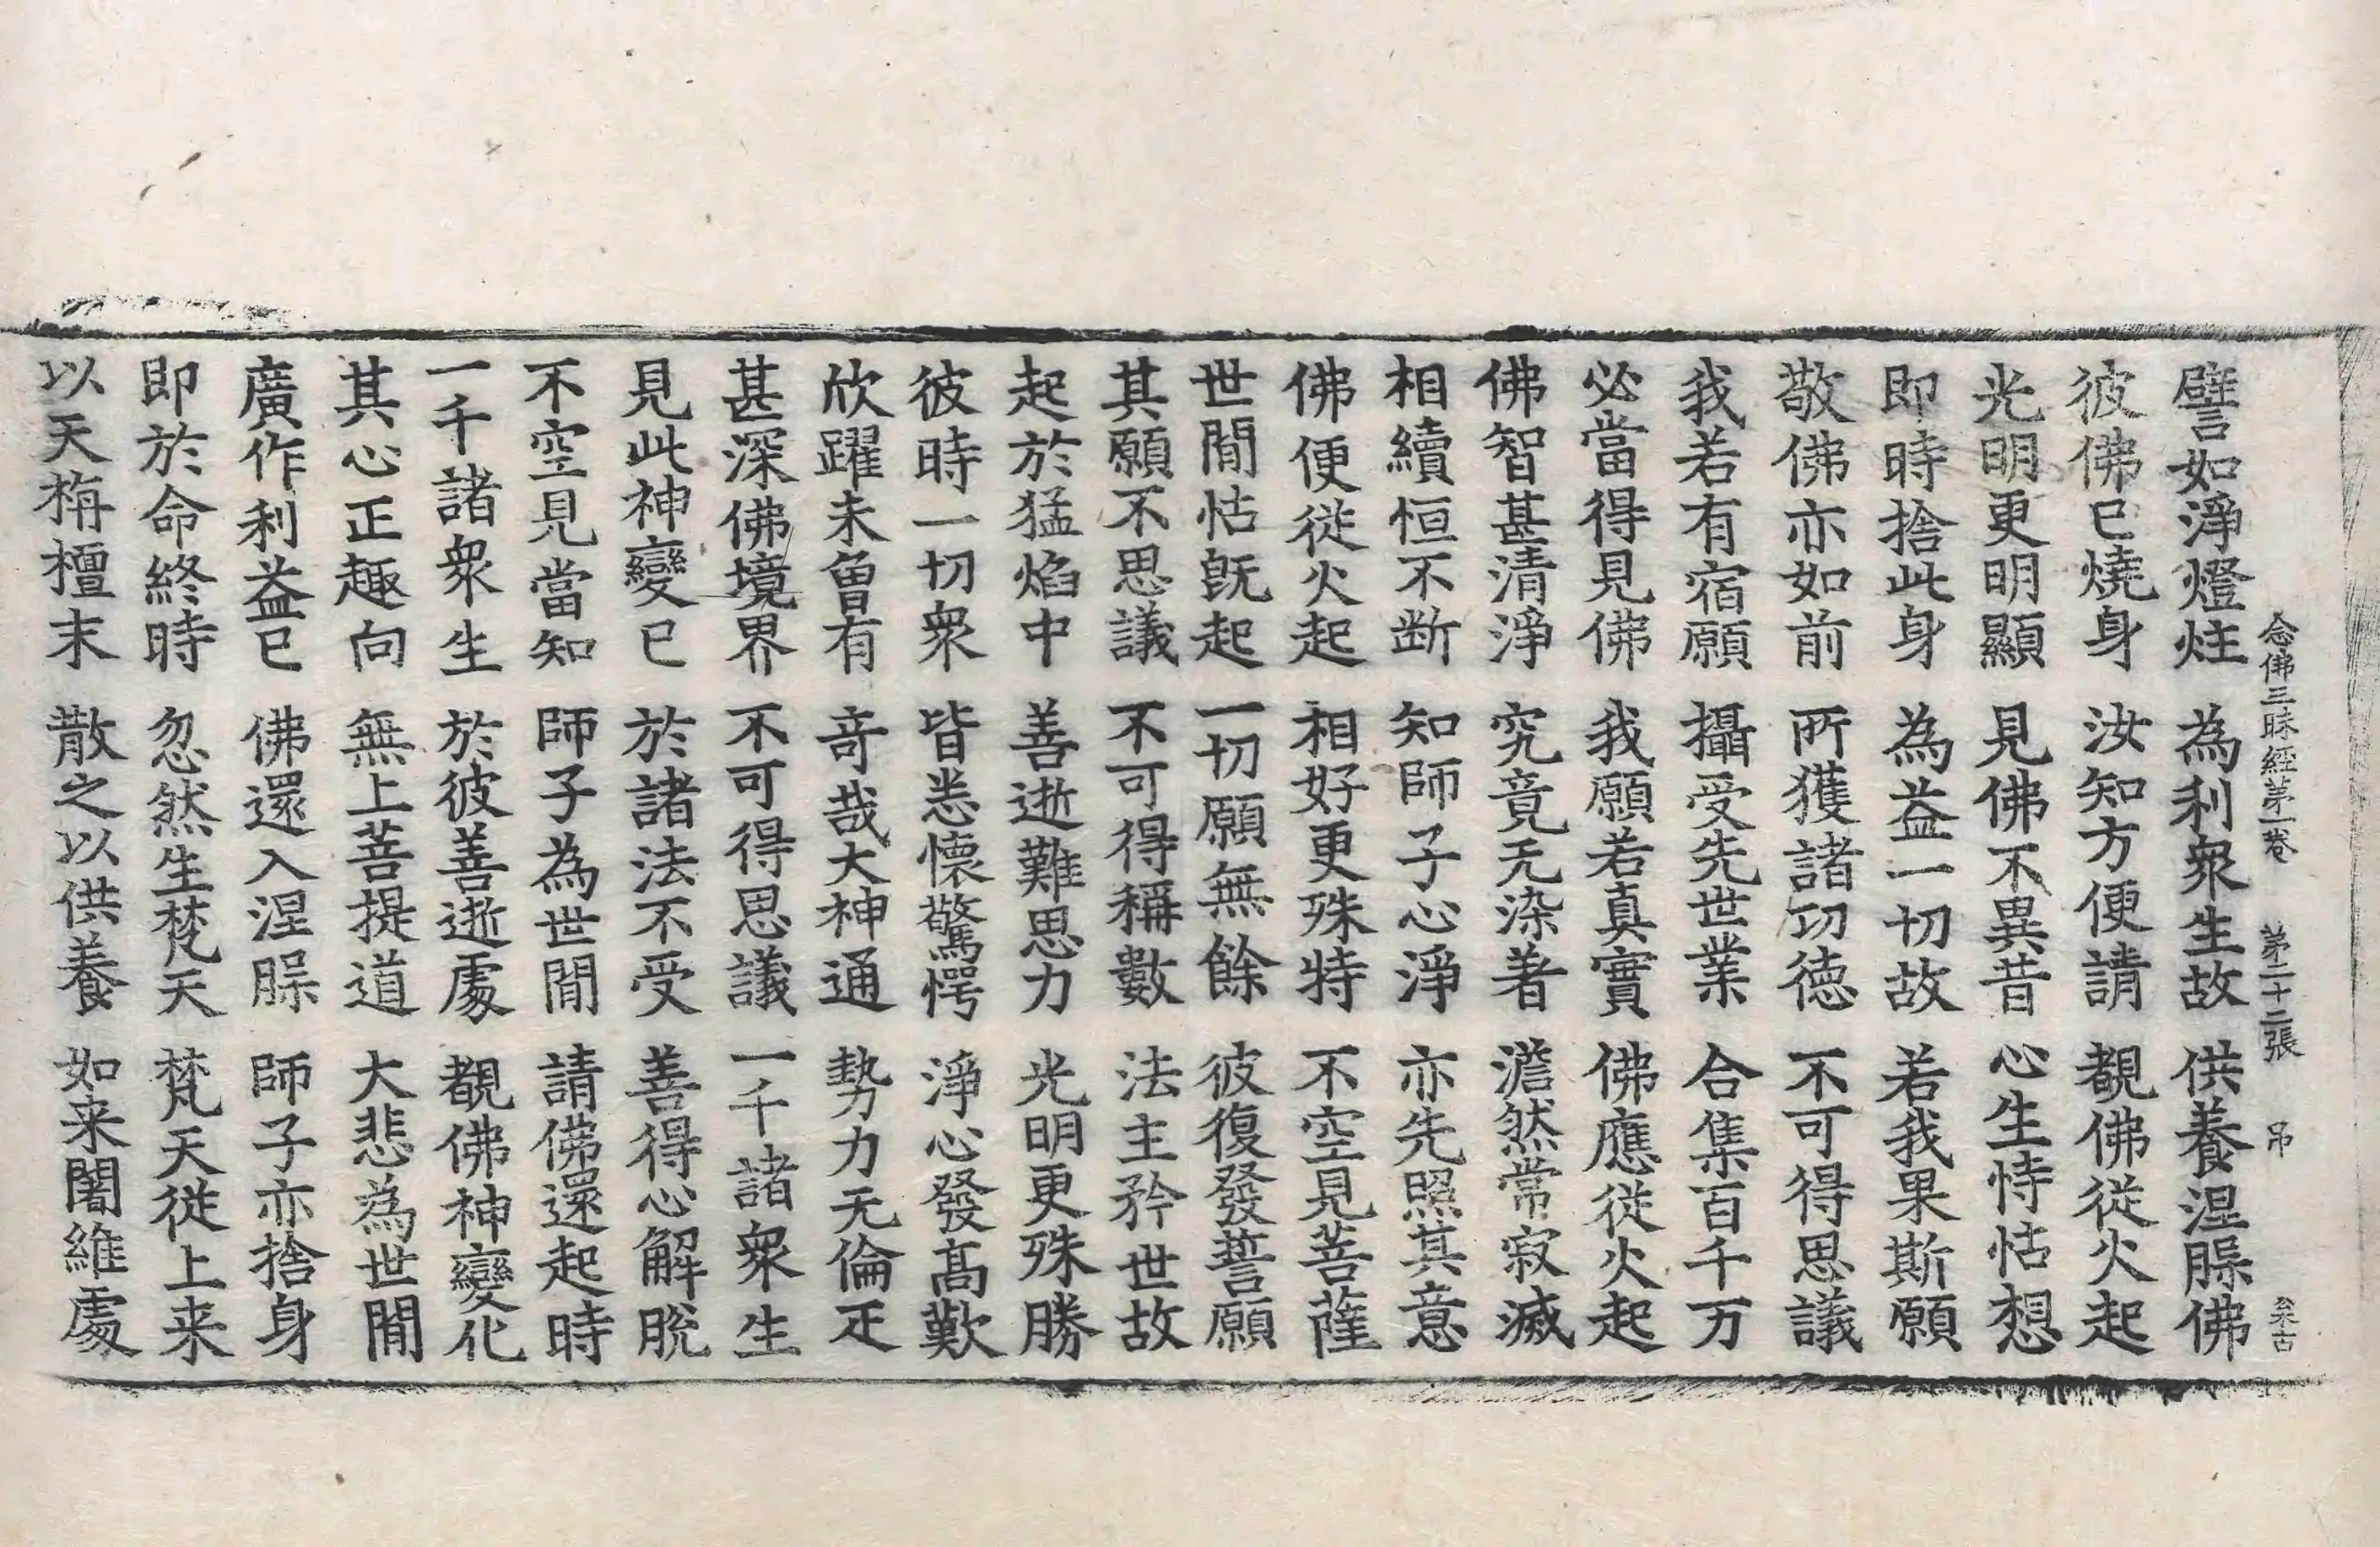 念佛三昧經第一卷 第二十二張 吊 枽古
譬如淨燈炷 為利衆生故 供養涅槃佛
彼佛已燒身 汝知方便請 覩佛從火起
光明更明顯 見佛不異昔 心生恃怙想
即時捨此身 為益一切故 若我果斯願
敬佛亦如前 所獲諸功德 不可得思議
我若有宿願 攝受先世業 合集百千万
必當得見佛 我願若真實 佛應從火起
佛智甚清淨 究竟无染著 澹然常寂滅
相續恒不断 知師子心淨 亦先照其意
佛便從火起 相好更殊特 不空見菩薩
世間怙旣起 一切願無餘 彼復發誓願
其願不思議 不可得稱數 法主矜世故
起於猛焰中 善逝難思力 光明更殊勝
彼時一切衆 皆悉懷驚愕 淨心發高歎
欣躍未曾有 奇哉大神通 勢力无倫疋
甚深佛境界 不可得思議 一千諸衆生
見此神變已 於諸法不受 善得心解脫
不空見當知 師子為世間 請佛還起時
一千諸衆生 於彼善逝處 覩佛神變化
其心正趣向 無上菩提道 大悲為世間
廣作利益已 佛還入涅槃 師子亦捨身
即於命終時 忽然生梵天 梵天從上来
以天栴檀末 散之以供養 如来闍維處